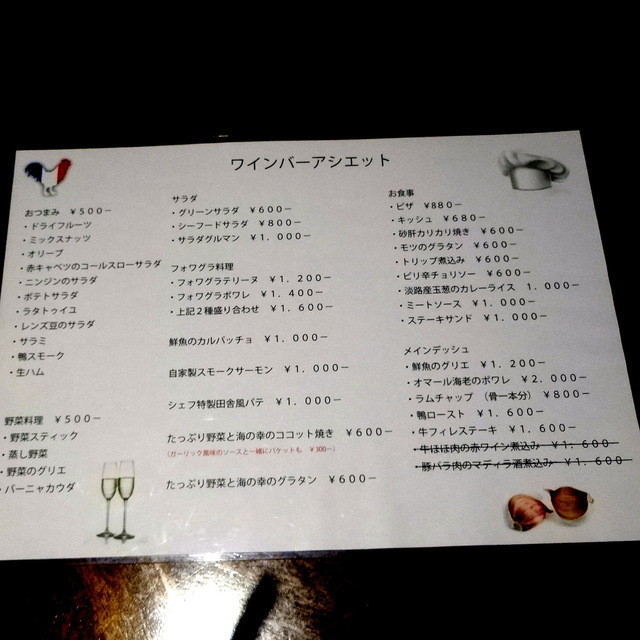 ワインバーアシエット
おつまみ ￥５００－
・ドライフルーツ
・ミックスナッツ
・オリーブ
・赤キャベツのコールスローサラダ
・ニンジンのサラダ
・ポテトサラダ
・ラタトゥイユ
・レンズ豆のサラダ
・サラミ
・鴨スモーク
・生ハム
野菜料理 ￥５００－
・野菜スティック
・蒸し野菜
・野菜のグリエ
・バーニャカウダ
サラダ
・グリーンサラダ ￥６００－
・シーフードサラダ ￥８００－
・サラダグルマン ￥１．０００－
フォワグラ料理
・フォワグラテリーヌ ￥１．２００－
・フォワグラポワレ ￥１．４００－
・上記２種盛り合わせ ￥１．６００－
鮮魚のカルパッチョ ￥１．０００－
自家製スモークサーモン ￥１．０００－
シェフ特製田舎風パテ ￥１．０００－
たっぷり野菜と海の幸のココット焼き ￥６００－
（ガーリック風味のソースと一緒にバケットも ￥300－）
たっぷり野菜と海の幸のグラタン ￥６００－
お食事
・ピザ ￥８８０－
・キッシュ ￥６８０－
・砂肝カリカリ焼き ￥６００－
・モツのグラタン ￥６００－
・トリップ煮込み ￥６００－
・ピリ辛チョリソー ￥６００－
・淡路産玉葱のカレーライス １．０００－
・ミートソース ￥１．０００－
・ステーキサンド ￥１．０００－
メインデッシュ
・鮮魚のグリエ ￥１．２００－
・オマール海老のポワレ ￥２．０００－
・ラムチャップ （骨一本分） ￥８００－
・鴨ロースト ￥１．６００－
・牛フィレステーキ ￥１．６００－
・牛ほほ肉の赤ワイン煮込み ￥１．６００－
・豚バラ肉のマディラ酒煮込み ￥１．６００